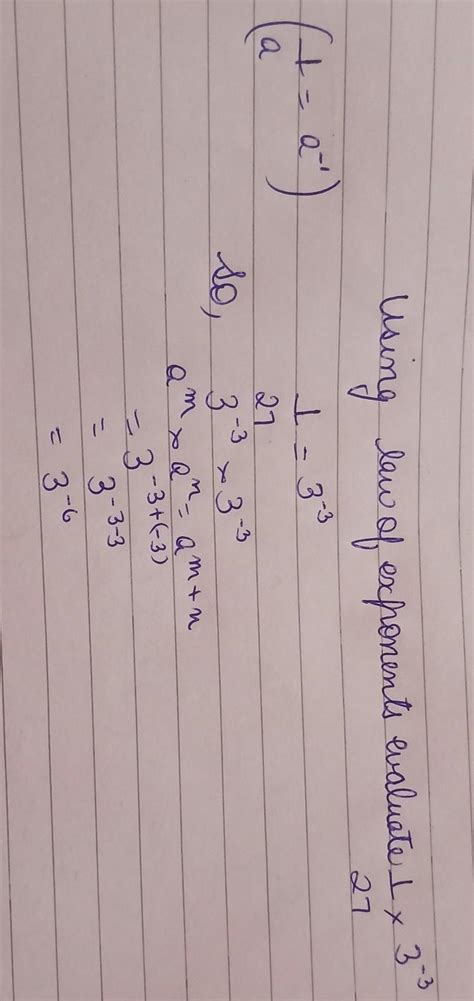 Using law of exponents evaluate 1/27 × 3⁻³
(1/a = a⁻¹) 1/27 = 3⁻³
so, 3⁻³ × 3⁻³
aᵐ × aⁿ = aᵐ⁺ⁿ
= 3⁻³⁺⁽⁻³⁾
= 3⁻³⁻³
= 3⁻⁶